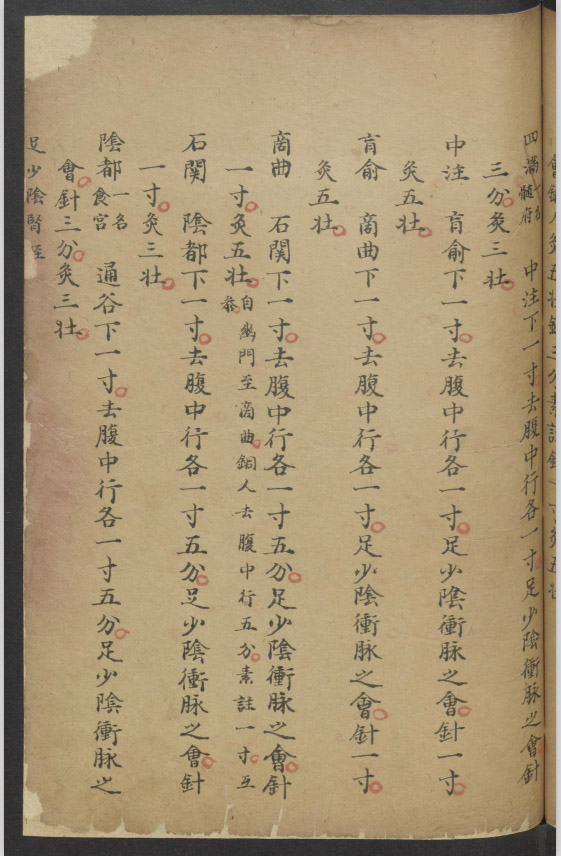 四滿一名髓府　中注下一寸去腹中行各一寸足少陰衝脉之會針
三分灸三壯
中注　肓俞下一寸去腹中行各一寸足少陰衝脉之會針一寸
灸五壯
肓俞　商曲下一寸去腹中行各一寸足少陰衝脉之會針一寸
灸五壯
商曲　石関下一寸去腹中行各一寸五分足少陰衝脉之會針
一寸灸五壯自幽門至商曲銅人去腹中行五分素註一寸
石関　陰都下一寸去腹中行各一寸五分足少陰衝脉之會針
一寸灸三壯
陰都一名食宮　通谷下一寸去腹中行各一寸五分足少陰衝脉之
會針三分灸三壯
足少陰腎至